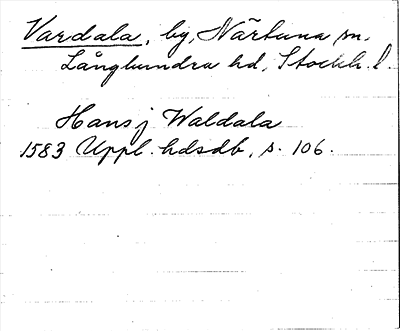 Vardala, by, Närtuna sn.
Långhundra hd, Stockh. l.
Hans j Waldala
1583 Uppl. hdsdb, s. 106.